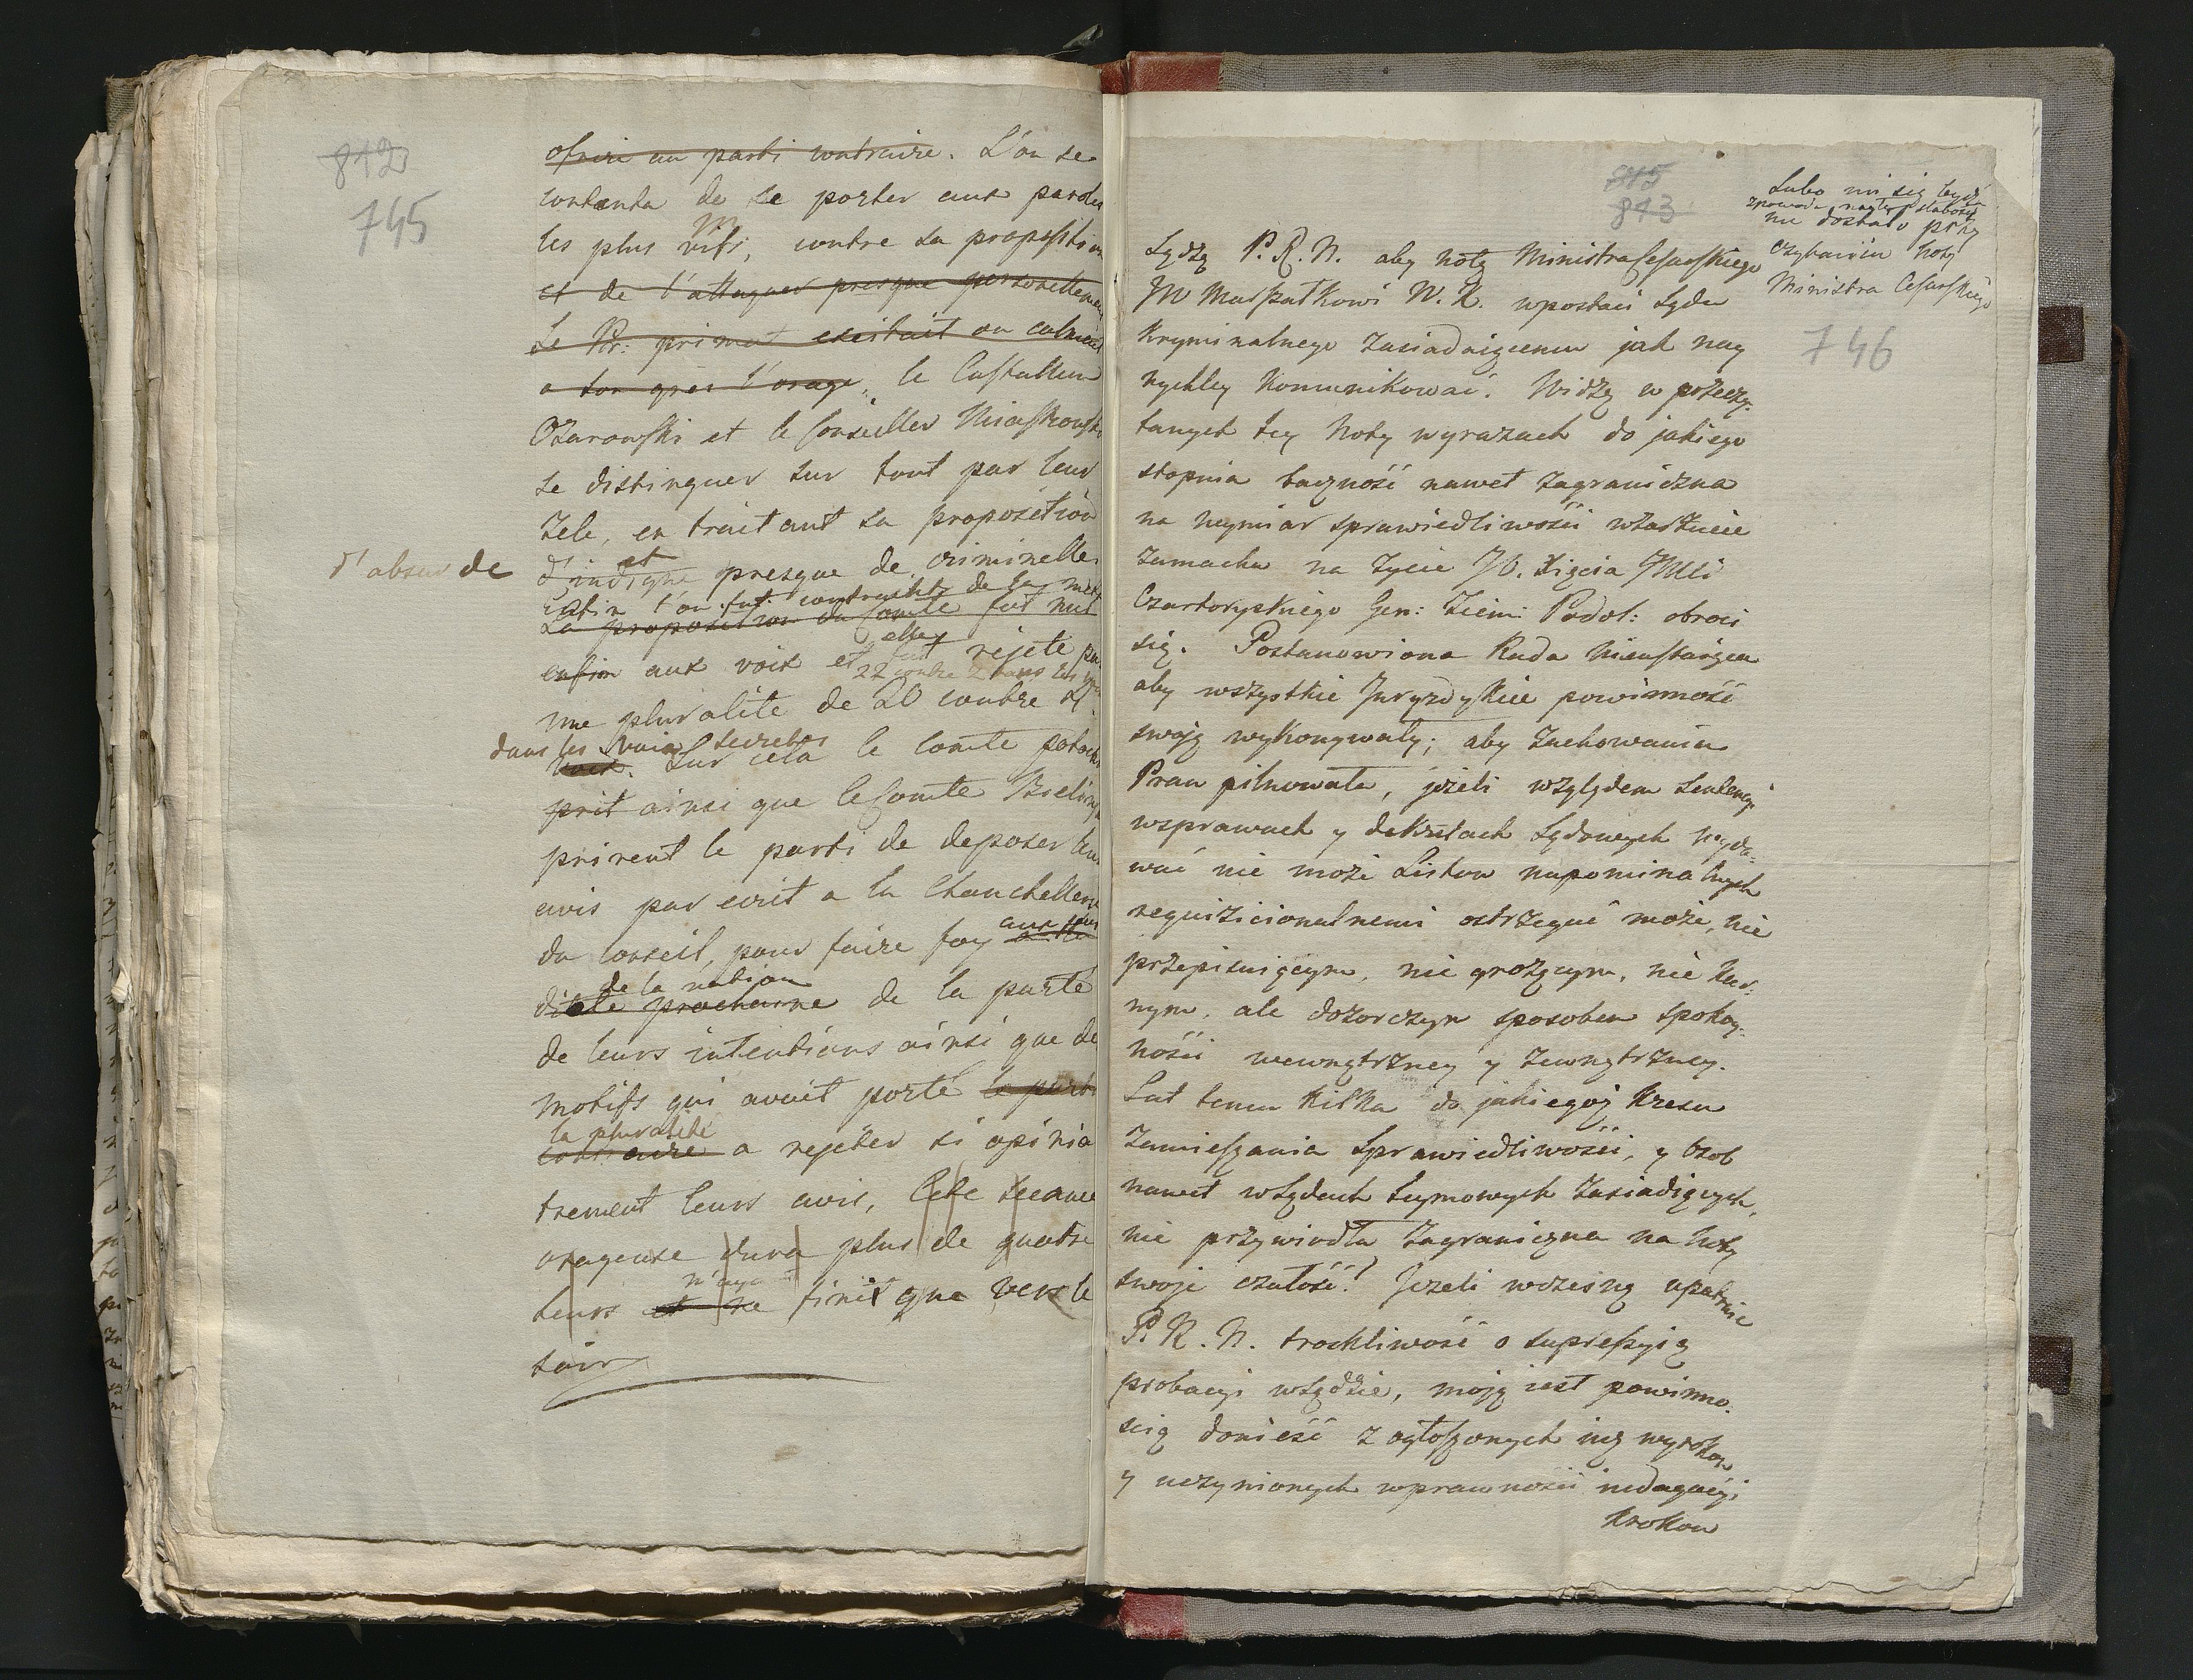 812
745
ofrir au parti contraire. L'on se
contenta de se porter aux paroles
les plus vifs, contre sa proposition
et de l'attaquer presque personellement
Le Pr: primat excitait ou calmait
a son grès l'orage. le Castellan
Ozarowski et le Conseiller Miaskowski
se distinguer sur tout par leur
zele, en traitant sa proposition
d'absurde
et
d'indigne presque de criminelle
Enfin l'on fut de la
La proposition du Comte fut mise
elle
enfin aux voix et fut rejeté par
22 contre 2 dans les
une pluralité de 20 contre 4
dans les voix secretes
voix. Sur cela le Comte potocki
prit ainsi que le Comte Bielinski
prirent le parti de deposer leur
avis par ecrit a la Chanchellerie
du Conseil, pour faire foy aux yeux
de la nation
diete prochaine de la pureté
de leurs intentions ainsi que de
motifs qui avoit porté le parti
la pluralité
contraire a rejeter si opinia
trement leurs avis, Cette seance
orageuse dura plus de quatre
n'aya
heurs et ne finit que vers le
soir
815
813
Lubo mi się
zpowodu nagłey słabości
nie dostało przy
czytaniu Noty
Ministra Cesarskiego
746
Sądzę P. R. N. aby notę Ministra Cesarskiego
JM Marszałkowi W. K. wpostaci Sądu
Kryminalnego Zasiadaiącemu jak nay
rychley Komunikować. Widzę w przeczy-
tanych tey Noty wyrazach do jakiego
stopnia baczność nawet zagraniczna
na wymiar sprawiedliwości właściwie
zamachu na życie JO. Xięcia JMci
Czartoryskiego Gen: Ziem: Podol: obroci
się. Postanowiona Rada Nieustaiąca
aby wszystkie Juryzdykcie powinność
swoję wykonywały; aby zachowania
Praw pilnowała, jeżeli względem Sentencyi
wsprawach y dekretach Sądowych wyda-
wać nie może Listow napominalnych
requizicionalnemi ostrzegać może, nie
przepisuiącym, nie grożącym, nie kar-
nym, ale dozorczym sposobem spokoy-
ności wewnętrzney y zewnętrzney.
Lat temu kilka do jakiegoj kresu
Zamieszania Sprawiedliwości, y Osob
nawet wSądach Seymowych zasiadiących,
nie przywiodła zagraniczna na Noty
swoje czułość! Jeżeli wczesną upatruie
P. R. N. troskliwość o supressyią
probacyi wSądzie, moją iest powinno-
scią donieść z ogłoszonych iuż wyrokow
y uczynionych wprawności indagacyi
krokow